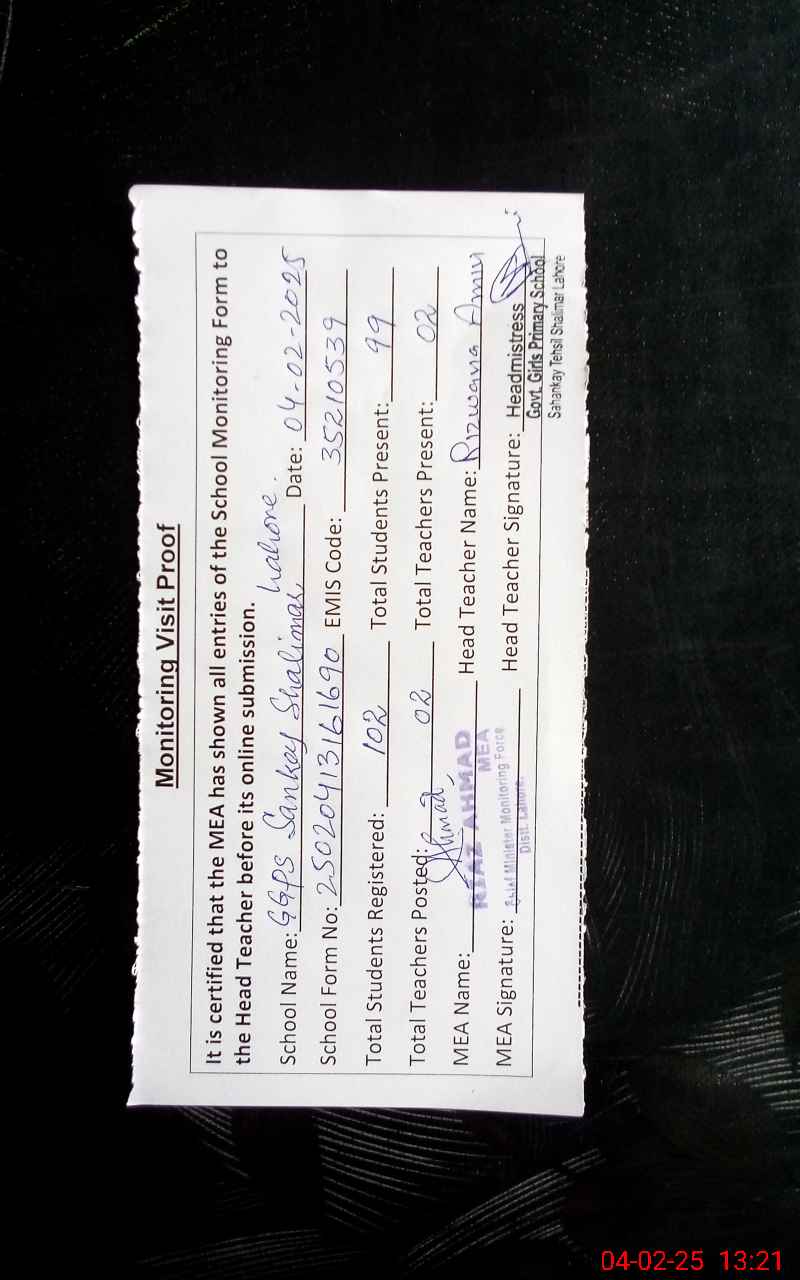 Monitoring Visit Proof
It is certified that the MEA has shown all entries of the School Monitoring Form to
the Head Teacher before its online submission.
School Name: GGPS Sankay Shalimar Lahore. Date: 04-02-2025
School Form No: 25020413161690 EMIS Code: 35210539
Total Students Registered: 102 Total Students Present: 99
Total Teachers Posted: 02 Total Teachers Present: 02
MEA Name: RIAZ AHMAD Head Teacher Name: Rizwana Amin
MEA
MEA Signature: Chief Minister Monitoring Force Head Teacher Signature: Headmistress
Distt. Lahore.
Govt. Girls Primary School
Sahankay Tehsil Shalimar Lahore
04-02-25 13:21